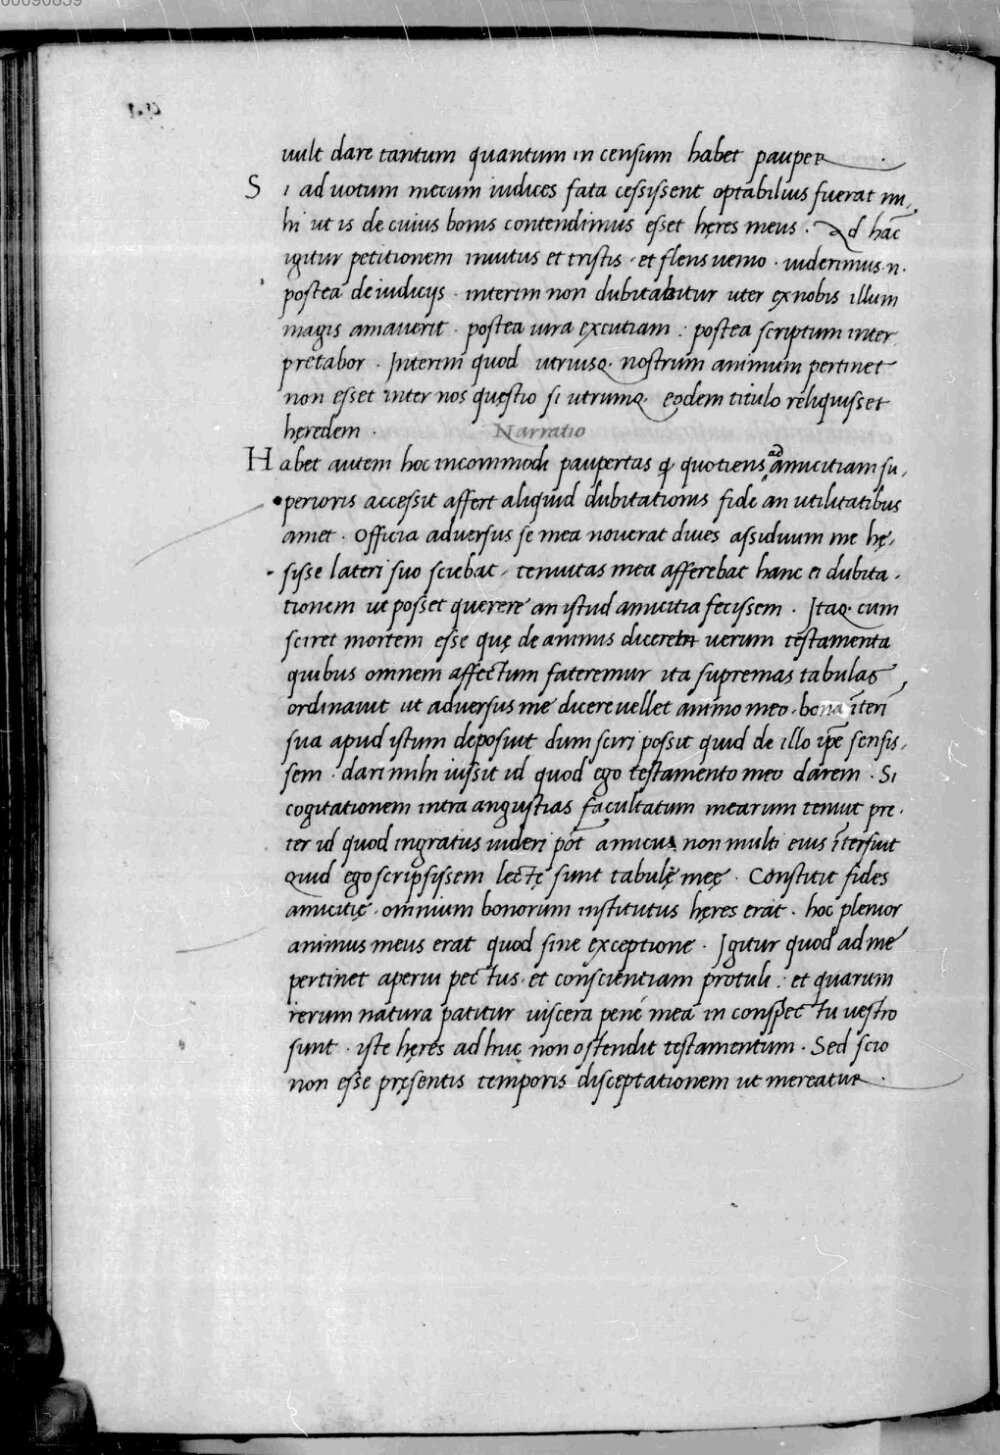 uult dare tantum quantum in censum habet pauper
Si ad uotum mecum iudices fata cessissent optabilius fuerat mi,
hi ut is de cuius bonis contendimus esset hęres meus . Ad hāc
igitur petitionem inuitus et tristis . et flens uenio . uiderimus .n.
postea de iudicijs . interim non dubitabitur uter ex nobis illum
magis amauerit . postea iura excutiam : postea scriptum inter
pretabor . Interim quod utriusq. nostrum animum pertinet
non esset inter nos quęstio si utrumq. eodem titulo reliquisset
hęredem . Narratio
Habet autem hoc incommodi paupertas ꝙ quotiens ad amicitiam su,
perioris accessit affert aliquid dubitationis fide an utilitatibus
amet . Officia aduersus se mea nouerat diues assiduum me hę,
sisse lateri suo sciebat, tenuitas mea afferebat hanc ei dubita,
tionem ut posset querere an istud amicitia fecissem . Itaq. cum
sciret mortem esse quę de animis diceret uerum testamenta
quibus omnem affectum fateremur ita supremas tabulas
ordinauit ut aduersus me dicere uellet animo meo . bona īteri
sua apud istum deposuit dum sciri possit quid de illo ip̄e sensis,
sem . dari mihi iussit id quod ego testamento meo darem . Si
cogitationem intra angustias facultatum mearum tenuit pre,
ter id quod ingratus uideri pōt amicus non multi eius īterfuit
Quid ego scripsissem lectę sunt tabulę meę . Constitit fides
amicitię . omnium bonorum institutus hęres erat . hoc plenior
animus meus erat quod sine exceptione . Igitur quod ad me
pertinet aperui pectus . et conscientiam protuli : et quarum
rerum natura patitur uiscera pene mea in conspectu uestro
sunt . iste hęres adhuc non ostendit testamentum . Sed scio
non esse pręsentis temporis disceptationem ut mereatur .